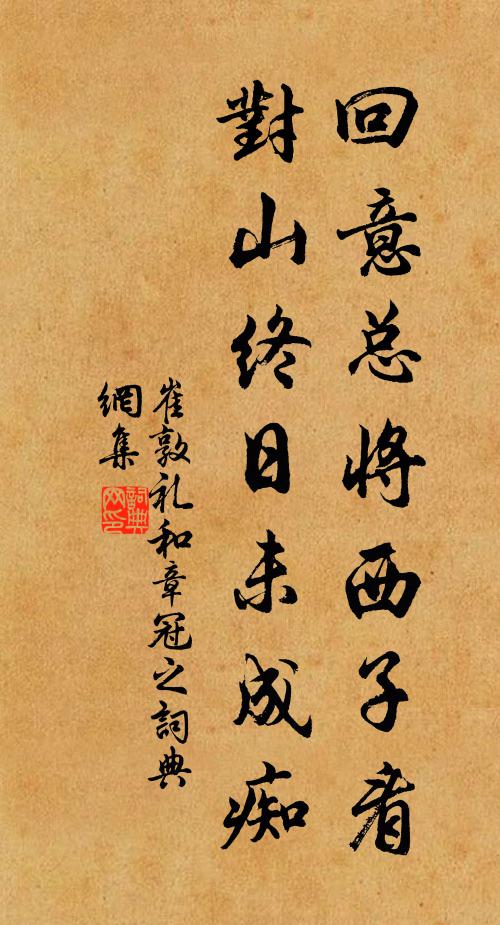 回意总将西子看
對山终日未成痴
崔敦礼和章冠之詞典
網集
詞典
网印